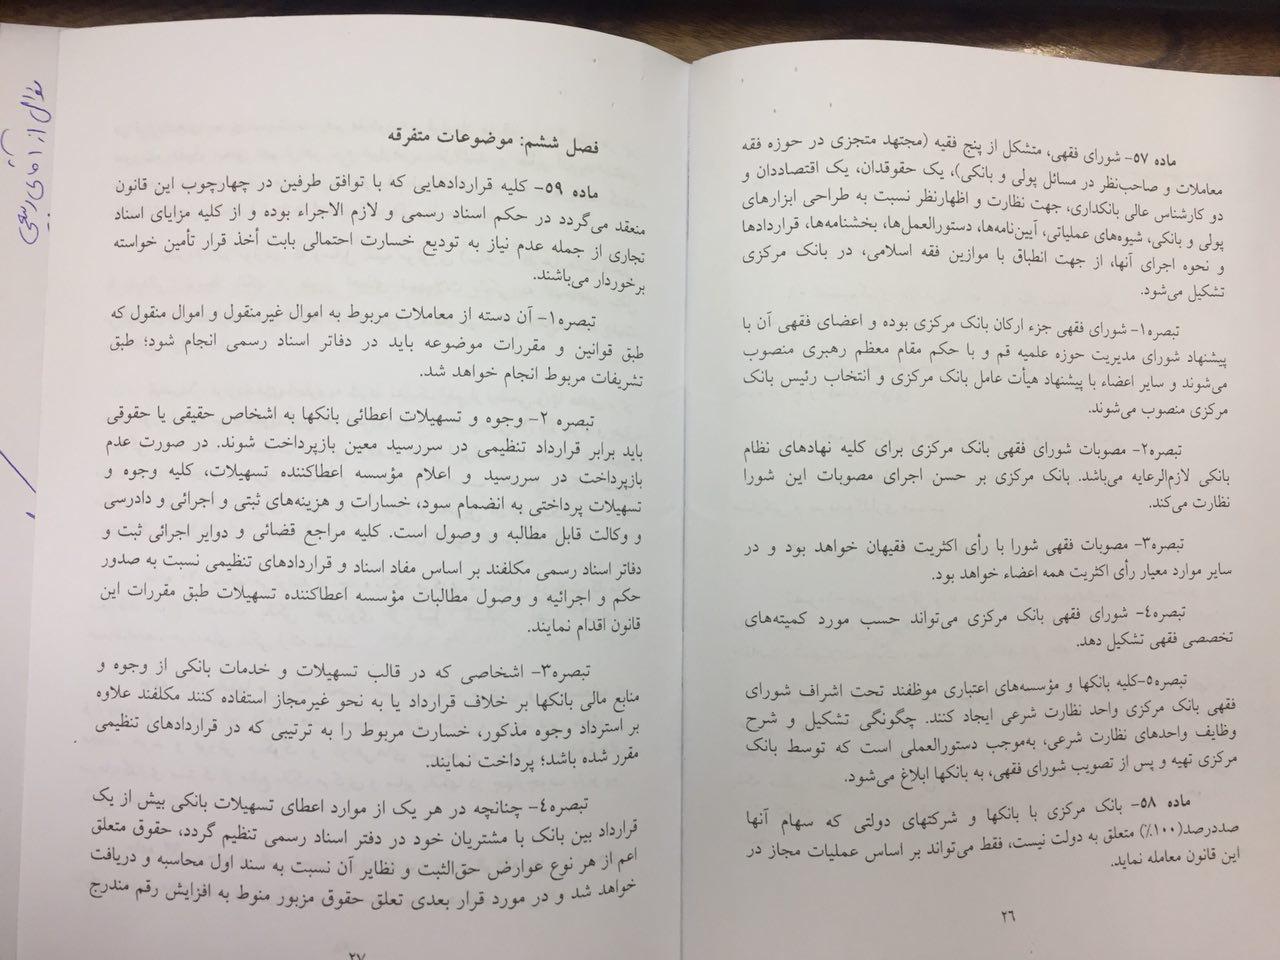 ماده ۵۷- شورای فقهی، متشکل از پنج فقیه (مجتهد متجزی در حوزه فقه
معاملات و صاحب‌نظر در مسائل پولی و بانکی)، یک حقوقدان، یک اقتصاددان و
دو کارشناس عالی بانکداری، جهت نظارت و اظهارنظر نسبت به طراحی ابزارهای
پولی و بانکی، شیوه‌های عملیاتی، آیین‌نامه‌ها، دستورالعمل‌ها، بخشنامه‌ها، قراردادها
و نحوه اجرای آنها، از جهت انطباق با موازین فقه اسلامی، در بانک مرکزی
تشکیل می‌شود.
تبصره۱- شورای فقهی جزء ارکان بانک مرکزی بوده و اعضای فقهی آن با
پیشنهاد شورای مدیریت حوزه علمیه قم و با حکم مقام معظم رهبری منصوب
می‌شوند و سایر اعضاء با پیشنهاد هیأت عامل بانک مرکزی و انتخاب رئیس بانک
مرکزی منصوب می‌شوند.
تبصره۲- مصوبات شورای فقهی بانک مرکزی برای کلیه نهادهای نظام
بانکی لازم‌الرعایه می‌باشد. بانک مرکزی بر حسن اجرای مصوبات این شورا
نظارت می‌کند.
تبصره۳- مصوبات فقهی شورا با رأی اکثریت فقیهان خواهد بود و در
سایر موارد معیار رأی اکثریت همه اعضاء خواهد بود.
تبصره٤- شورای فقهی بانک مرکزی می‌تواند حسب مورد کمیته‌های
تخصصی فقهی تشکیل دهد.
تبصره۵-کلیه بانکها و مؤسسه‌های اعتباری موظفند تحت اشراف شورای
فقهی بانک مرکزی واحد نظارت شرعی ایجاد کنند. چگونگی تشکیل و شرح
وظایف واحدهای نظارت شرعی، به‌موجب دستورالعملی است که توسط بانک
مرکزی تهیه و پس از تصویب شورای فقهی، به بانکها ابلاغ می‌شود.
ماده ۵۸- بانک مرکزی با بانکها و شرکتهای دولتی که سهام آنها
صددرصد(۱۰۰٪) متعلق به دولت نیست، فقط می‌تواند بر اساس عملیات مجاز در
این قانون معامله نماید.
۲۶
فصل ششم: موضوعات متفرقه
ماده ۵۹- کلیه قراردادهایی که با توافق طرفین در چهارچوب این قانون
منعقد می‌گردد در حکم اسناد رسمی و لازم الاجراء بوده و از کلیه مزایای اسناد
تجاری از جمله عدم نیاز به تودیع خسارت احتمالی بابت أخذ قرار تأمین خواسته
برخوردار می‌باشند.
تبصره۱- آن دسته از معاملات مربوط به اموال غیرمنقول و اموال منقول که
طبق قوانین و مقررات موضوعه باید در دفاتر اسناد رسمی انجام شود؛ طبق
تشریفات مربوط انجام خواهد شد.
تبصره ۲- وجوه و تسهیلات اعطائی بانکها به اشخاص حقیقی یا حقوقی
باید برابر قرارداد تنظیمی در سررسید معین بازپرداخت شوند. در صورت عدم
بازپرداخت در سررسید و اعلام مؤسسه اعطاکننده تسهیلات، کلیه وجوه و
تسهیلات پرداختی به انضمام سود، خسارات و هزینه‌های ثبتی و اجرائی و دادرسی
و وکالت قابل مطالبه و وصول است. کلیه مراجع قضائی و دوایر اجرائی ثبت و
دفاتر اسناد رسمی مکلفند بر اساس مفاد اسناد و قراردادهای تنظیمی نسبت به صدور
حکم و اجرائیه و وصول مطالبات مؤسسه اعطاکننده تسهیلات طبق مقررات این
قانون اقدام نمایند.
تبصره۳- اشخاصی که در قالب تسهیلات و خدمات بانکی از وجوه و
منابع مالی بانکها بر خلاف قرارداد یا به نحو غیرمجاز استفاده کنند مکلفند علاوه
بر استرداد وجوه مذکور، خسارت مربوط را به ترتیبی که در قراردادهای تنظیمی
مقرر شده باشد؛ پرداخت نمایند.
تبصره٤- چنانچه در هر یک از موارد اعطای تسهیلات بانکی بیش از یک
قرارداد بین بانک با مشتریان خود در دفتر اسناد رسمی تنظیم گردد، حقوق متعلق
اعم از هر نوع عوارض حق‌الثبت و نظایر آن نسبت به سند اول محاسبه و دریافت
خواهد شد و در مورد قرار بعدی تعلق حقوق مزبور منوط به افزایش رقم مندرج
۲۷
سؤال از آقای